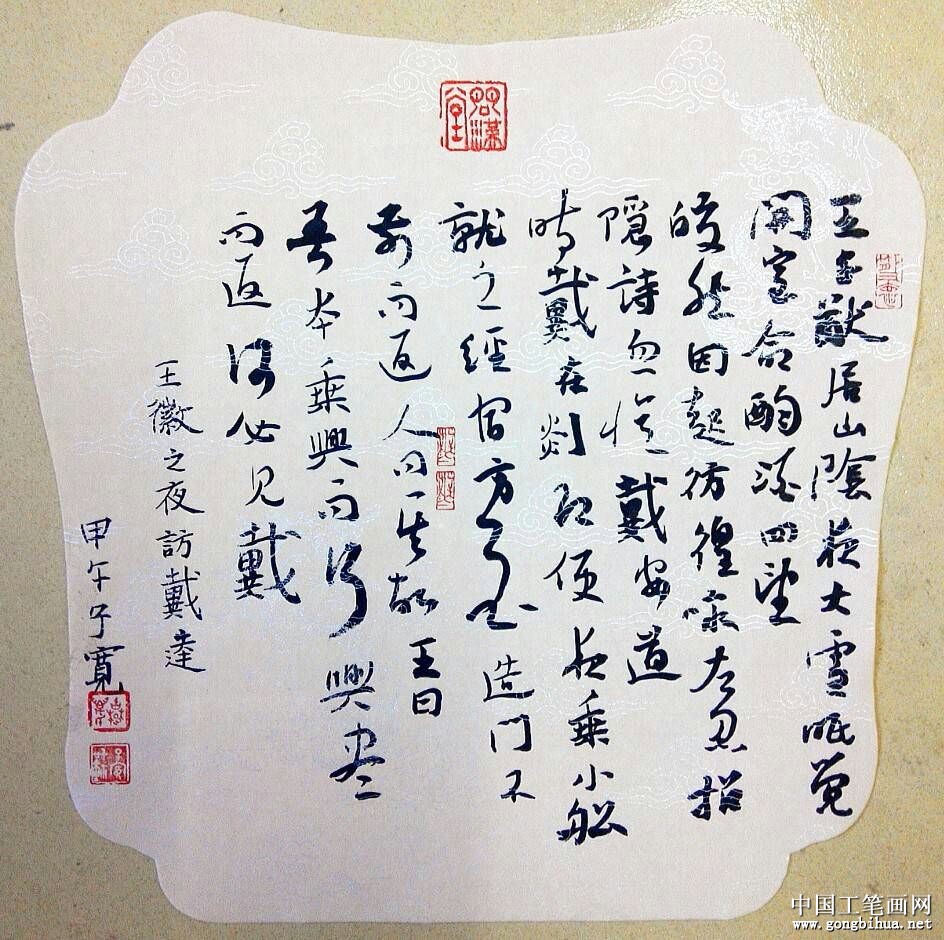 王子猷居山陰夜大雪眠覺
開室命酌酒四望
皎然因起彷徨詠左思招
隱詩忽憶戴安道
時戴在剡即便夜乘小船
就之經宿方至造門不
前而返人問其故王曰
吾本乘興而行興盡
而返何必見戴
王徽之夜訪戴逵
甲午子寬
中国工笔画网
www.gongbihua.net